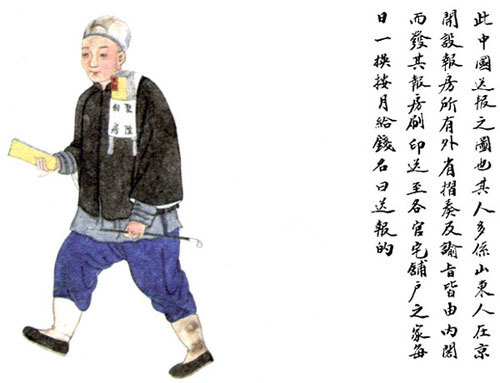 此中國送报之圖也其人多係山東人在京
開設報房所有外省摺奏及諭旨皆由內閣
而發其報房刷印送至各官宅舖戶之家每
日一換按月給錢名曰送報的
聚陞
房